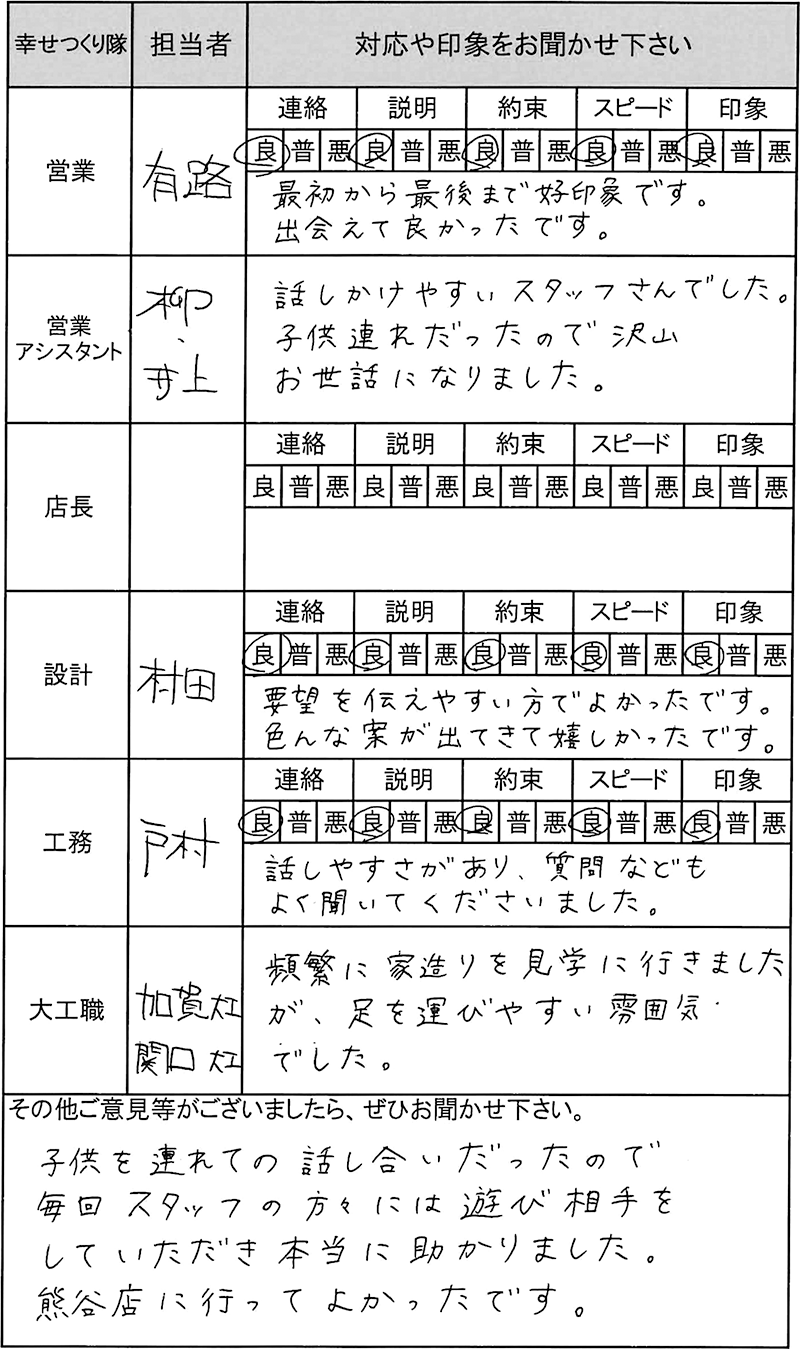 幸せつくり隊 担当者 対応や印象をお聞かせ下さい
営業 有路
連絡 説明 約束 スピード 印象
良 普 悪 良 普 悪 良 普 悪 良 普 悪 良 普 悪
最初から最後まで好印象です。
出会えて良かったです。
営業
アシスタント
柳
・
井上
話しかけやすいスタッフさんでした。
子供連れだったので沢山
お世話になりました。
店長
連絡 説明 約束 スピード 印象
良 普 悪 良 普 悪 良 普 悪 良 普 悪 良 普 悪
設計 村田
連絡 説明 約束 スピード 印象
良 普 悪 良 普 悪 良 普 悪 良 普 悪 良 普 悪
要望を伝えやすい方でよかったです。
色んな案が出てきて嬉しかったです。
工務 戸村
連絡 説明 約束 スピード 印象
良 普 悪 良 普 悪 良 普 悪 良 普 悪 良 普 悪
話しやすさがあり、質問なども
よく聞いてくださいました。
大工職
加賀
関口
頻繁に家造りを見学に行きました
が、足を運びやすい雰囲気
でした。
その他ご意見等がございましたら、ぜひお聞かせ下さい。
子供を連れての話し合いだったので
毎回スタッフの方々には遊び相手を
していただき本当に助かりました。
熊谷店に行ってよかったです。